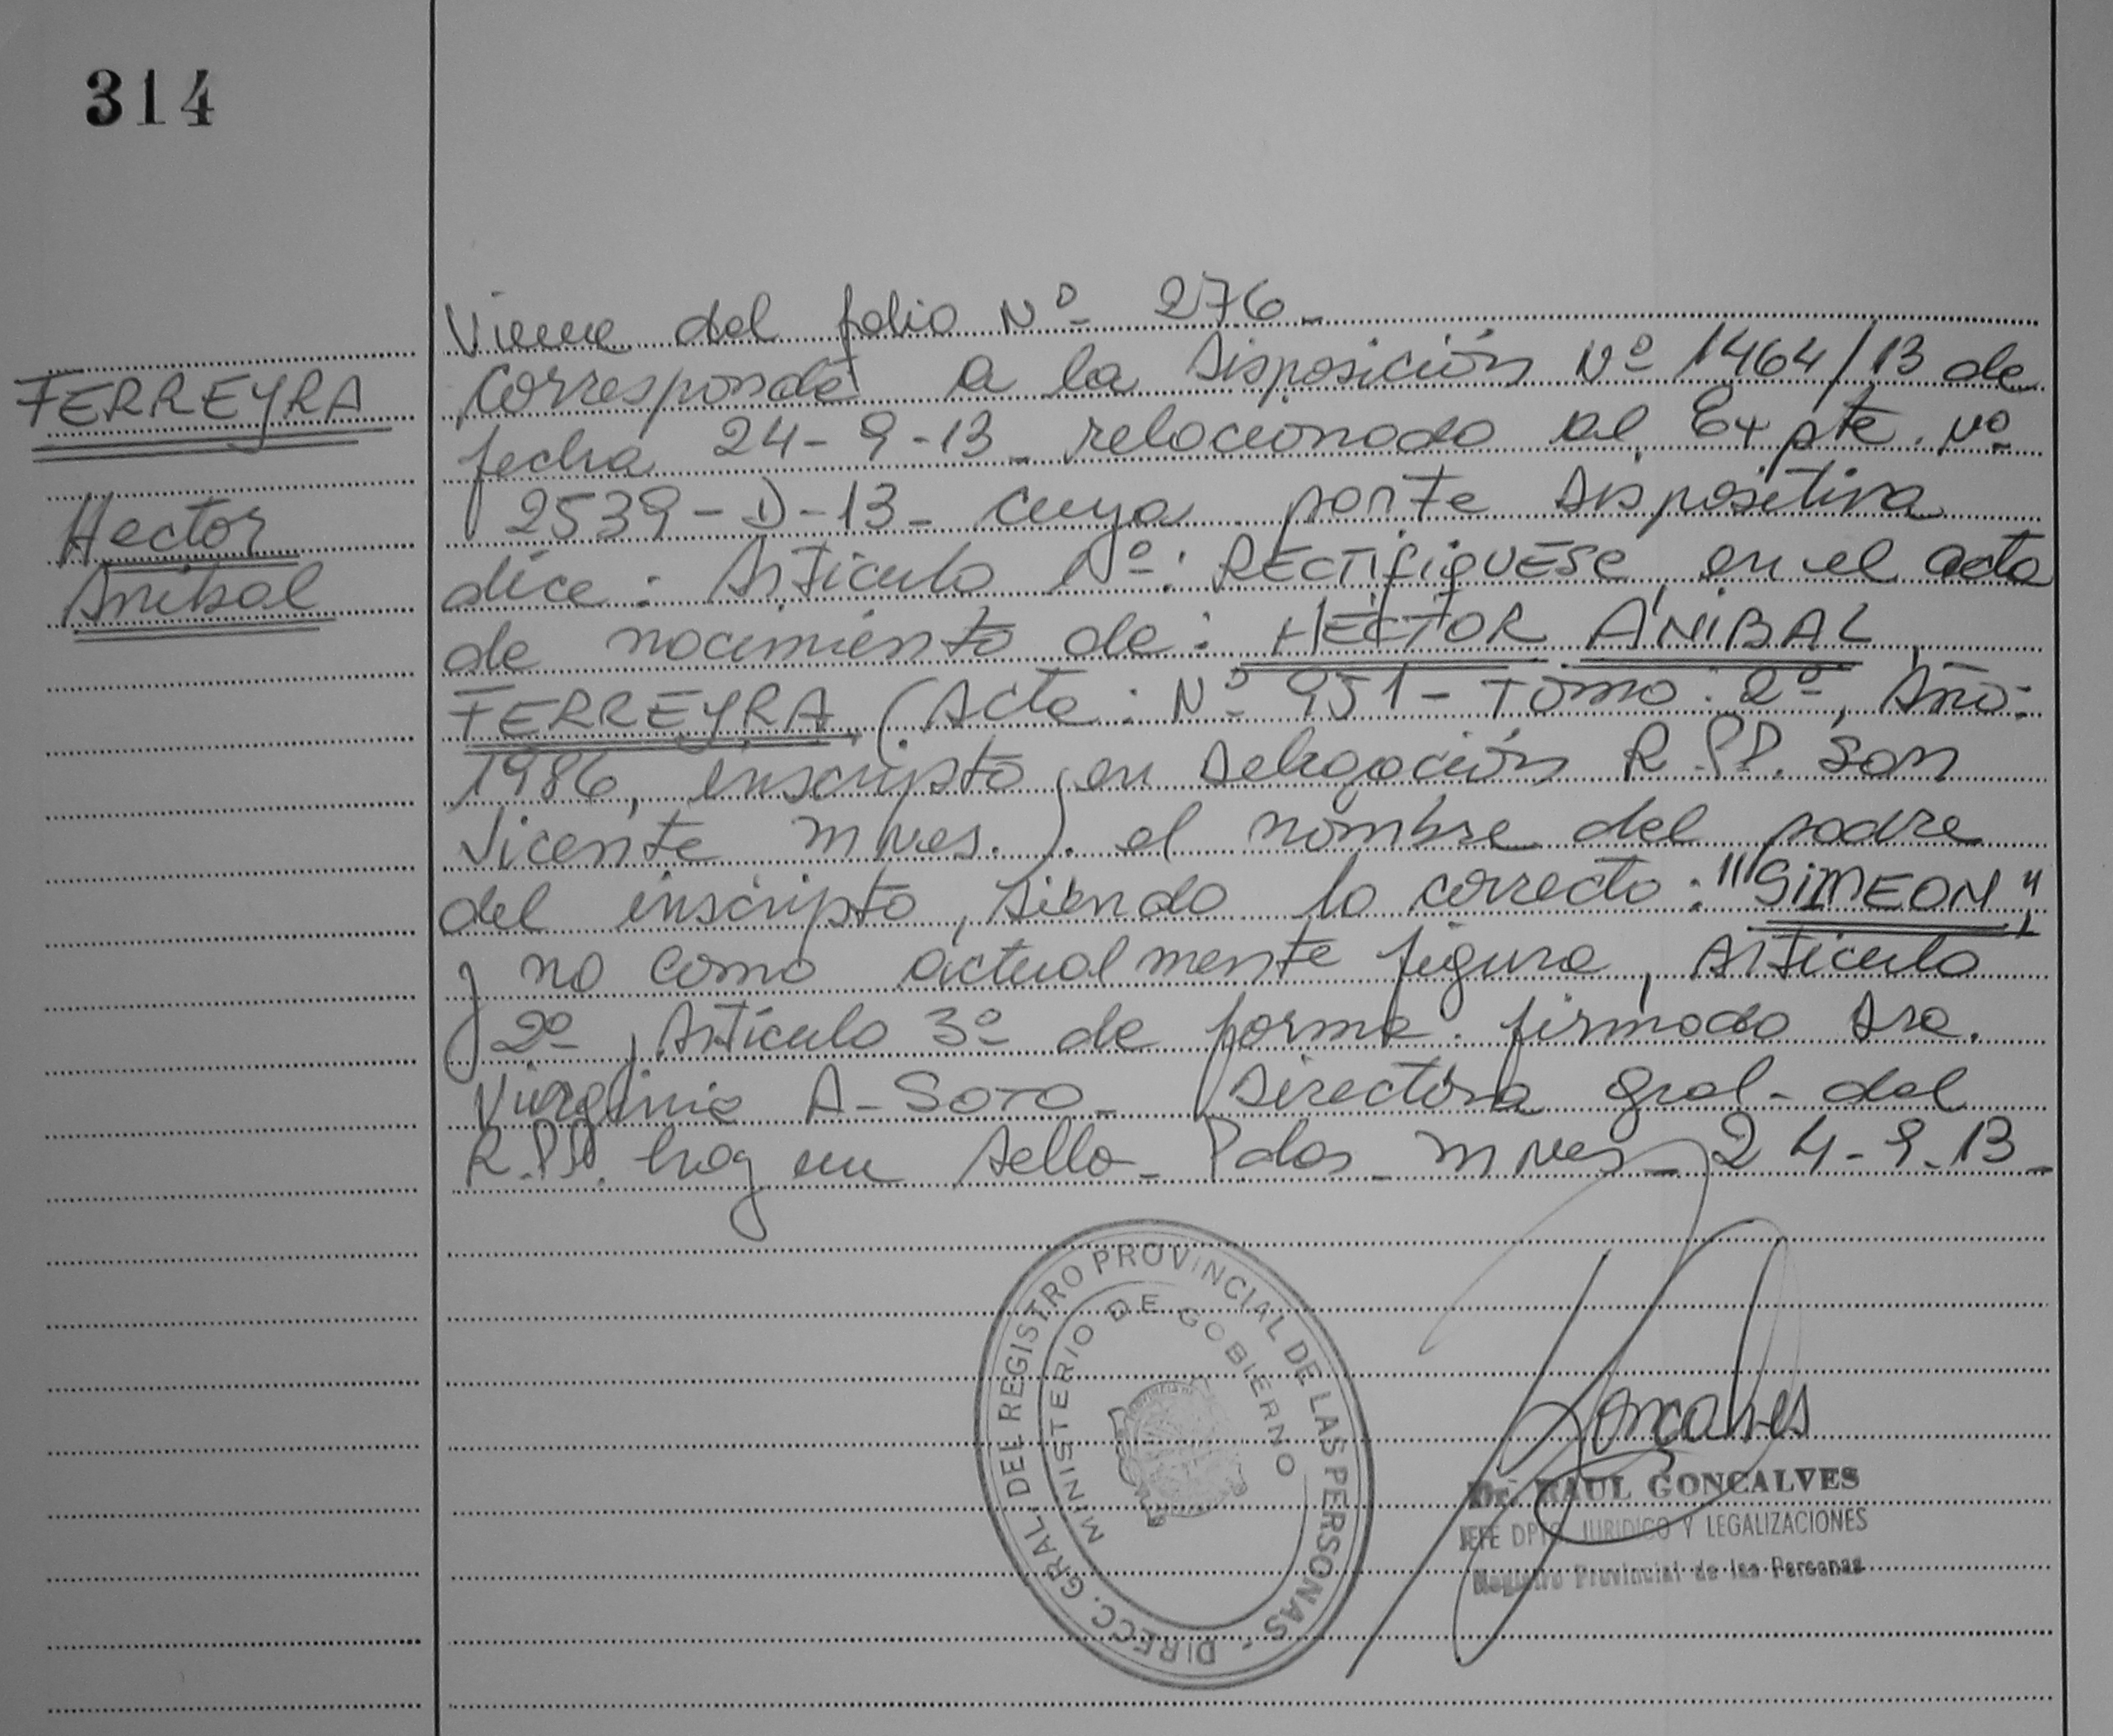 314
FERREYRA
Hector
Anibal
Viene del folio Nº 276_
Corresponde a la Disposición Nº 1464/13 de
fecha 24-9-13_ relacionado al Expte. Nº
2539-D-13_ cuya parte dispositiva
dice: Artículo 1º: RECTIFIQUESE, en el acta
de nacimiento de: HECTOR ANIBAL
FERREYRA, (Acta: Nº 951- Tomo: 2º, Año:
1986, inscripto en Delegación R.P.P. San
Vicente Mnes.). el nombre del padre
del inscripto, siendo lo correcto: "SIMEON",
y no como actualmente figura, Artículo
2º, Artículo 3º de forma. firmado Sra.
Virginia A- SOTO_ Directora Gral- del
R.P.P. hay un sello_ Pdas_ Mnes_ 24-9-13_
DIRECC. GRAL. DEL REGISTRO PROVINCIAL DE LAS PERSONAS -
MINISTERIO DE GOBIERNO
Goncalves
Dr. RAUL GONCALVES
JEFE DPTO. JURIDICO Y LEGALIZACIONES
Registro Provincial de las Personas